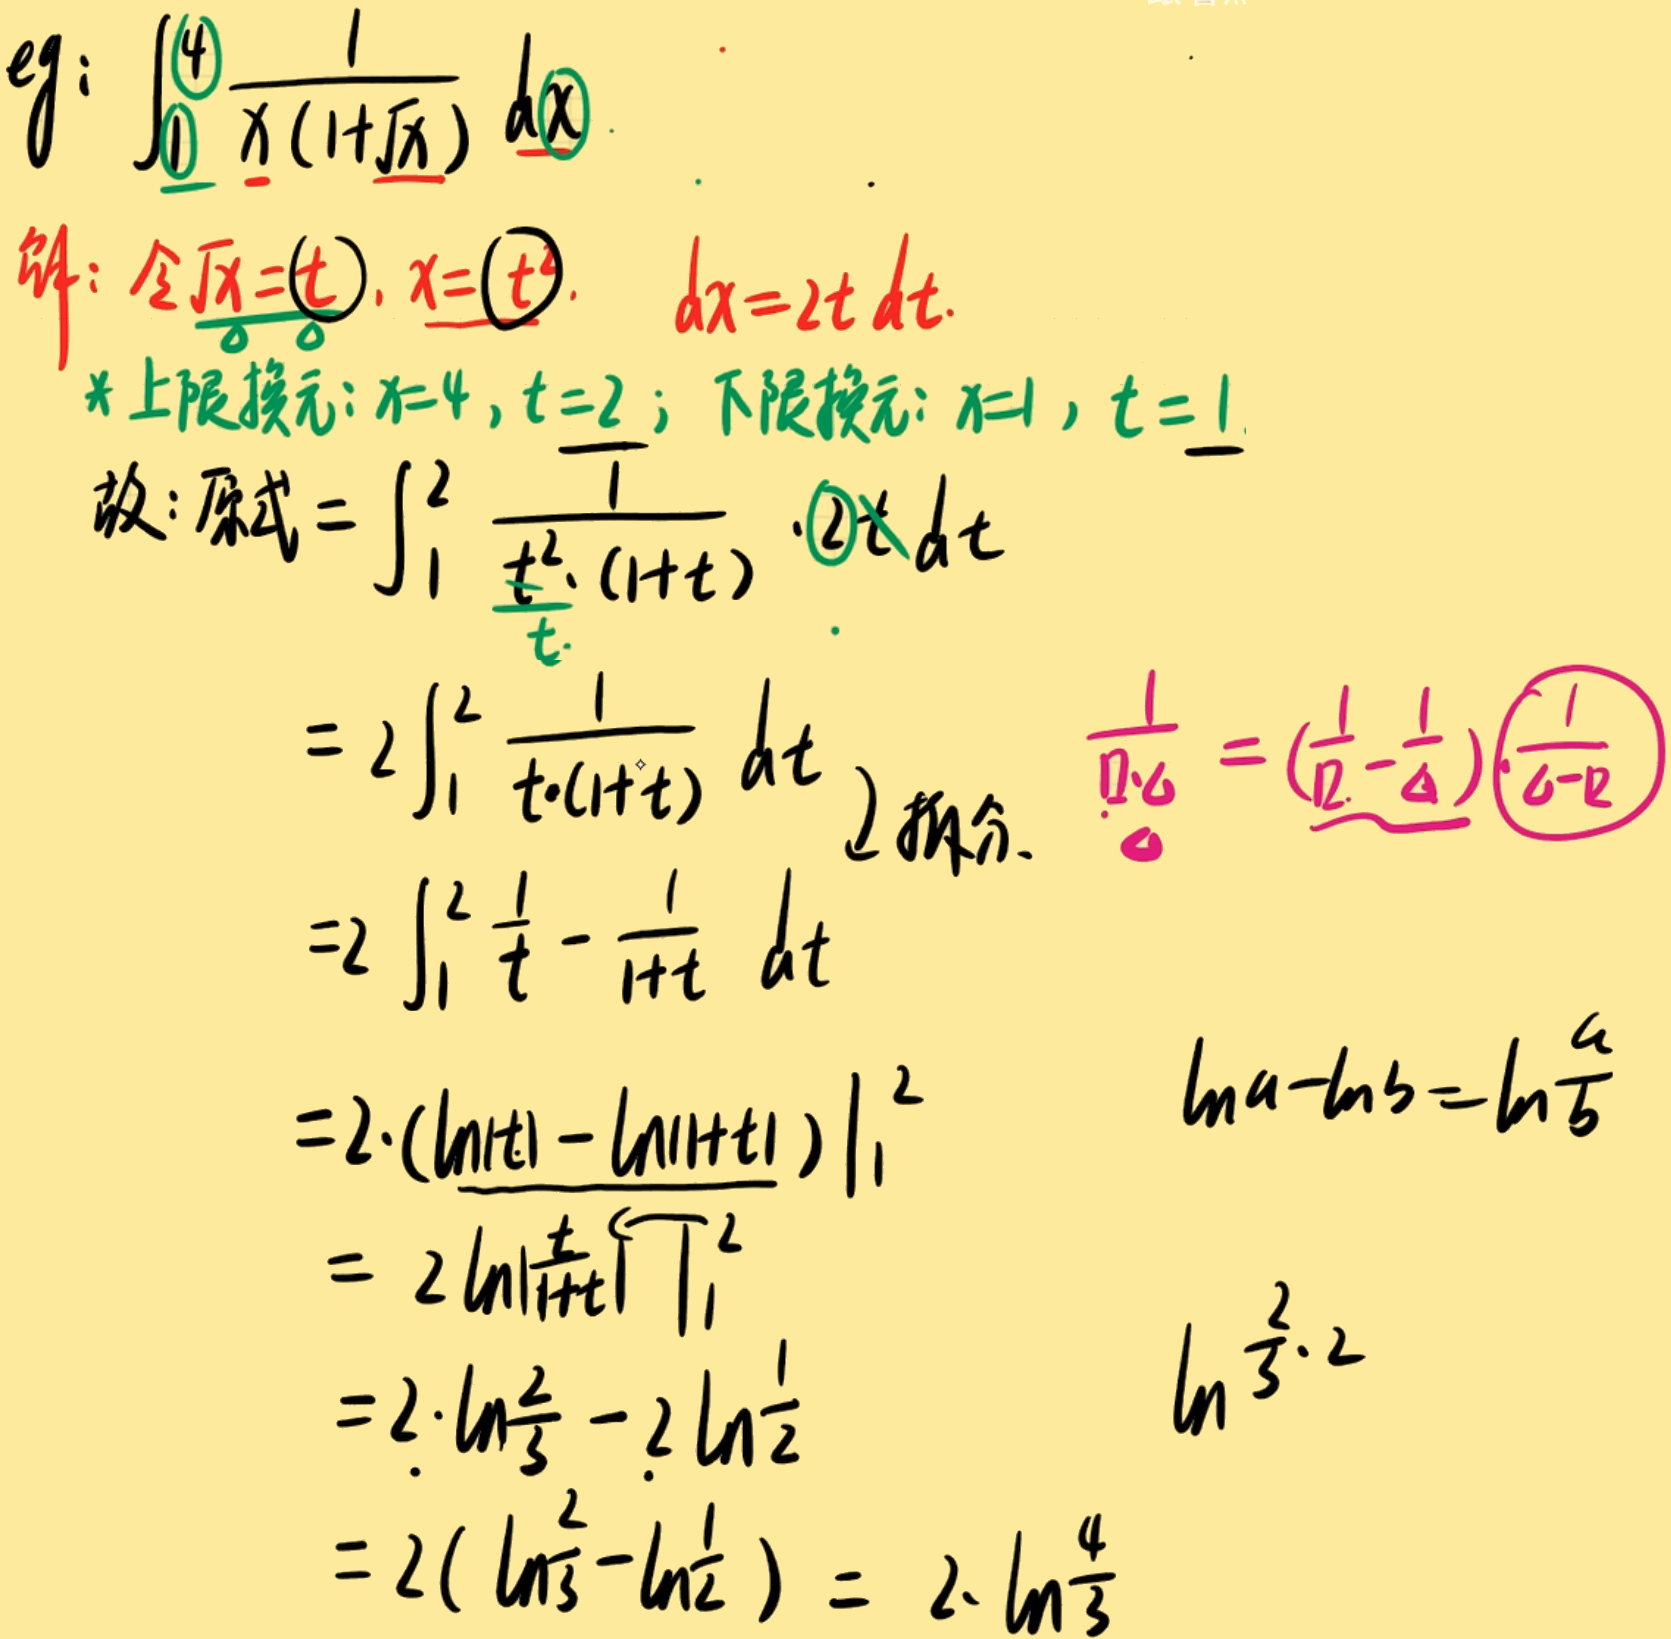 eg: ∫₁⁴ 1/(x(1+√x)) dx
解: 令√x=t, x=t². dx=2t dt.
*上限换元: x=4, t=2; 下限换元: x=1, t=1.
故: 原式=∫₁² 1/(t²·(1+t)) ·2t dt
t.
=2∫₁² 1/(t·(1+t)) dt
拆分.
1/(□·△) = (1/□-1/△)·1/(△-□)
△
=2∫₁² 1/t - 1/(1+t) dt
=2·(ln|t|-ln|1+t|)|₁²
lna-lnb=ln a/b
=2ln|t/(1+t)||₁²
=2·ln 2/3 -2ln 1/2
ln 2/3·2
=2(ln 2/3 -ln 1/2) = 2·ln 4/3